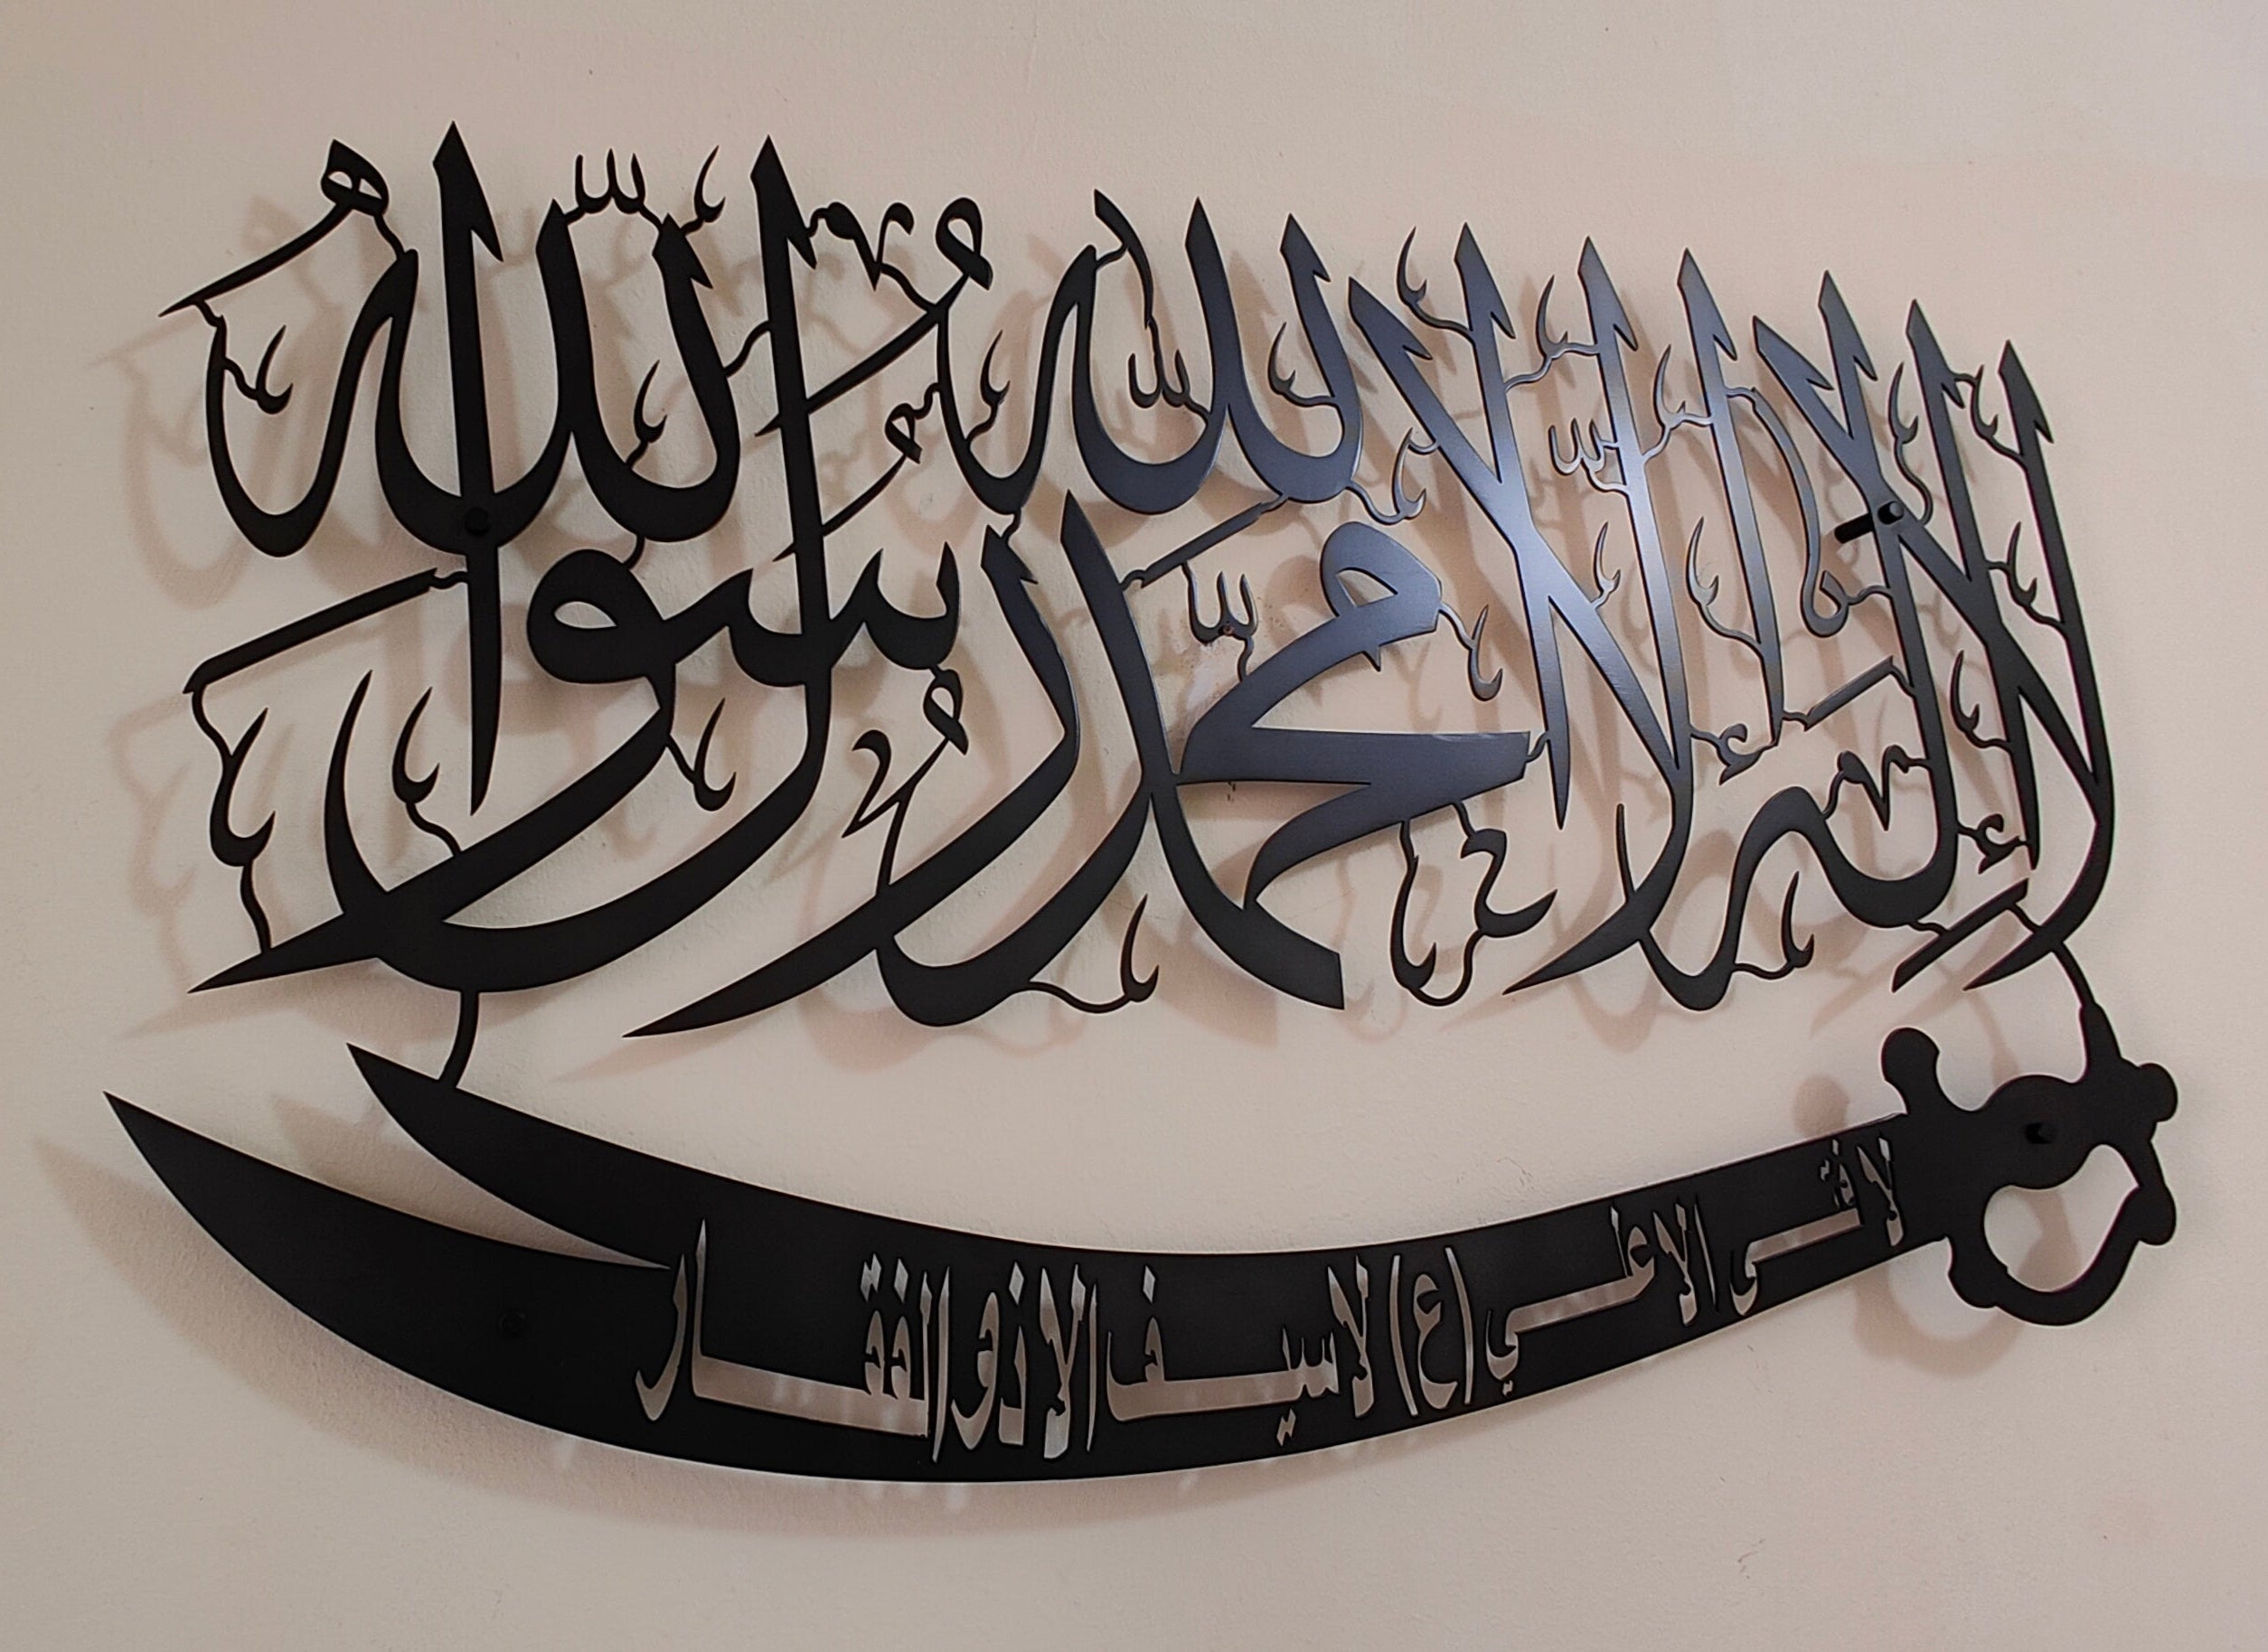 لا إله إلا الله محمد رسول الله
لا فتى الا علي (ع) لا سيف الا ذو الفقار